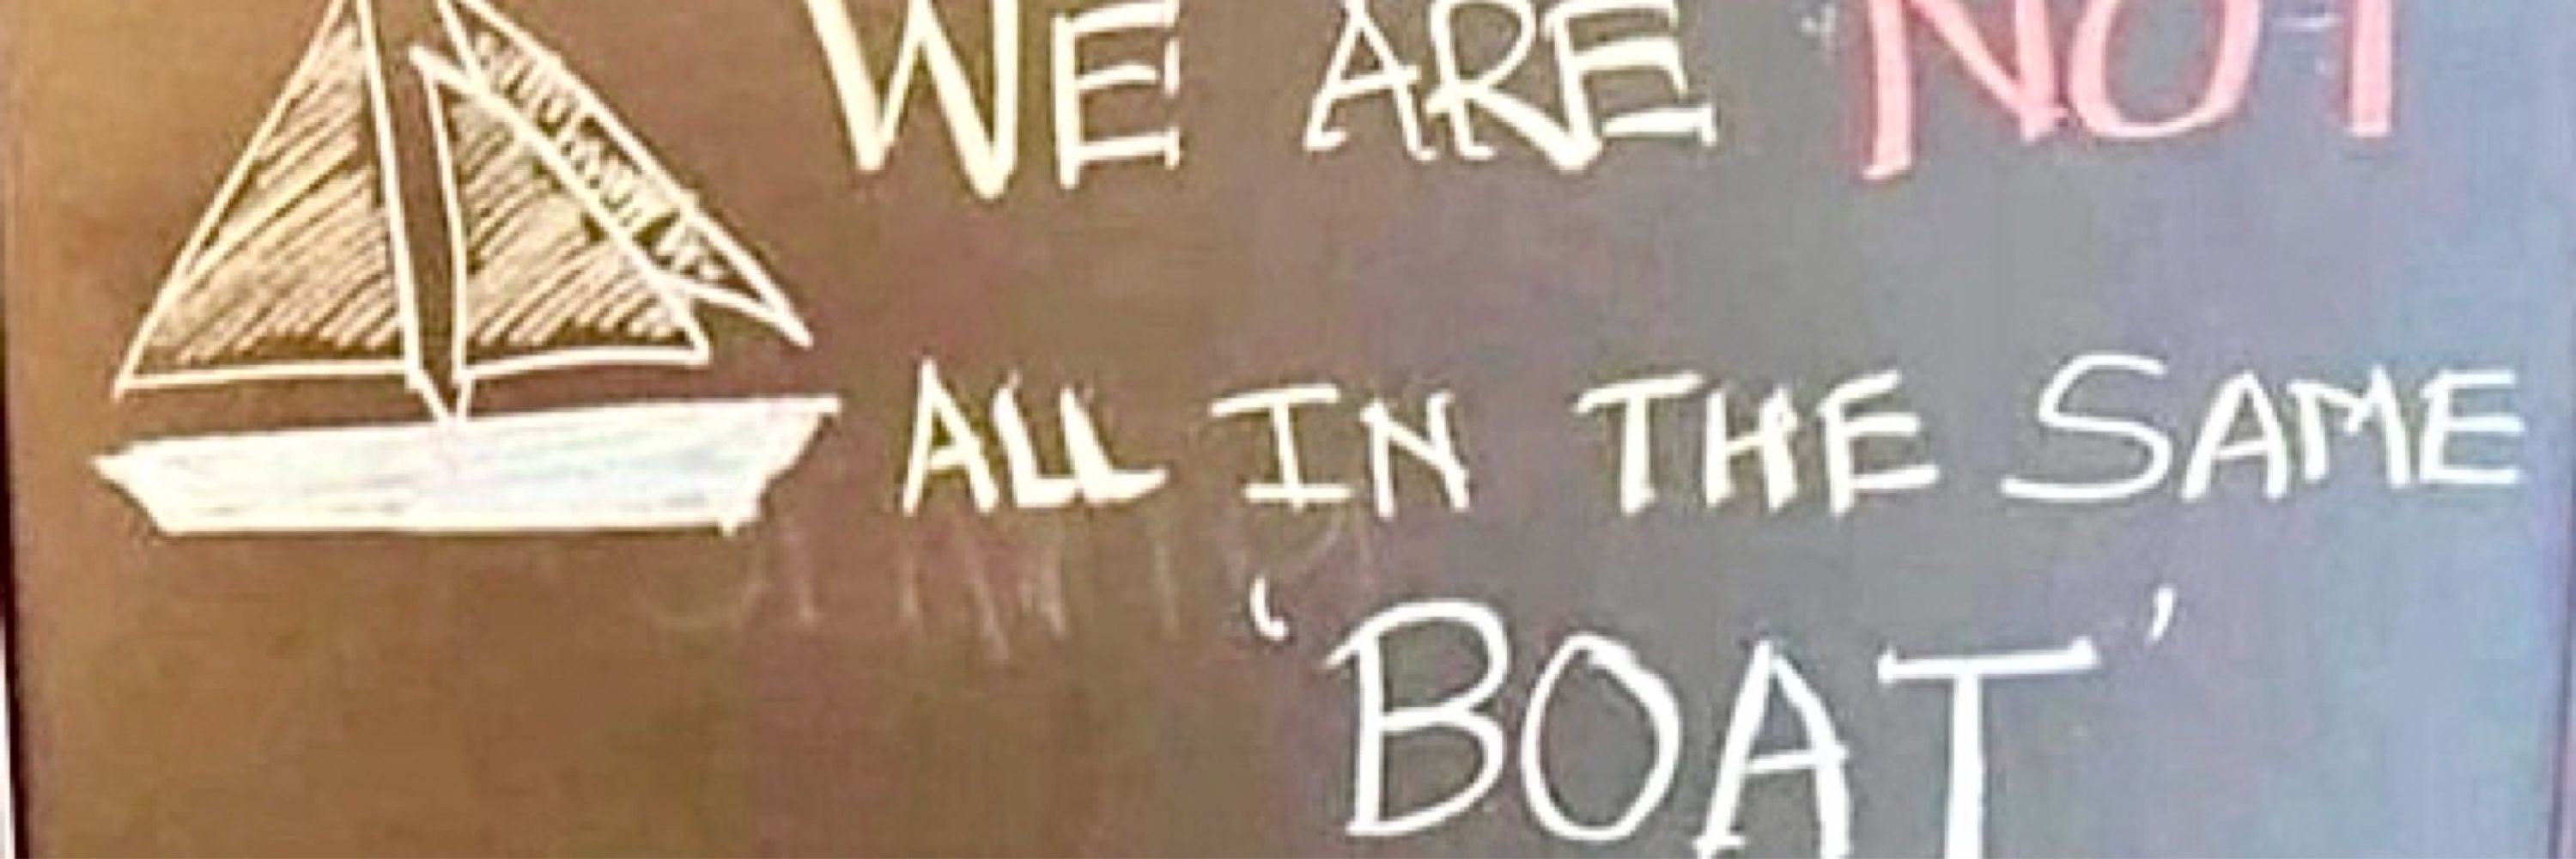 WE ARE NOT
ALL IN THE SAME
'BOAT'